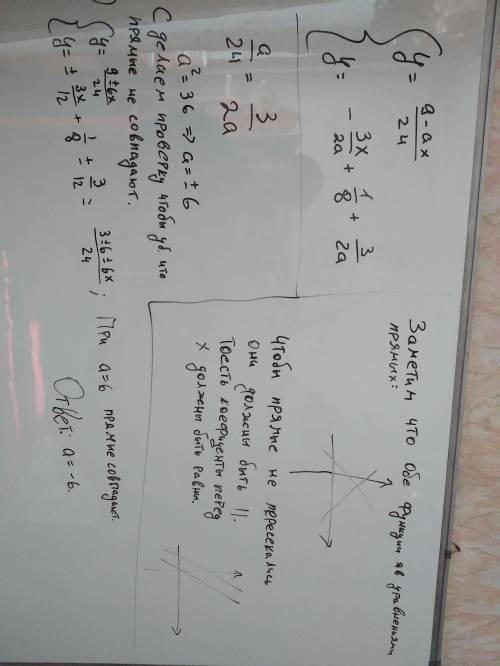 { y = 9 - ax / 24
y = - 3x / 2a + 1 / 8 + 3 / 2a
a / 24 = 3 / 2a
a² = 36 => a = ± 6
Сделаем проверку чтобы уб. что
прямые не совпадают.
{ y = 9 ± 6x / 24
y = ± 3x / 12 + 1 / 8 ± 3 / 12 = 3 ± 6 ± 6x / 24 ; При a = 6 прямые совпадают.
Ответ: a = -6.
Заметим что обе функции яв уравнениями
прямых:
Чтобы прямые не пересекались
они должны быть ||.
Тоесть коефиценты перед
x должены быть равны.